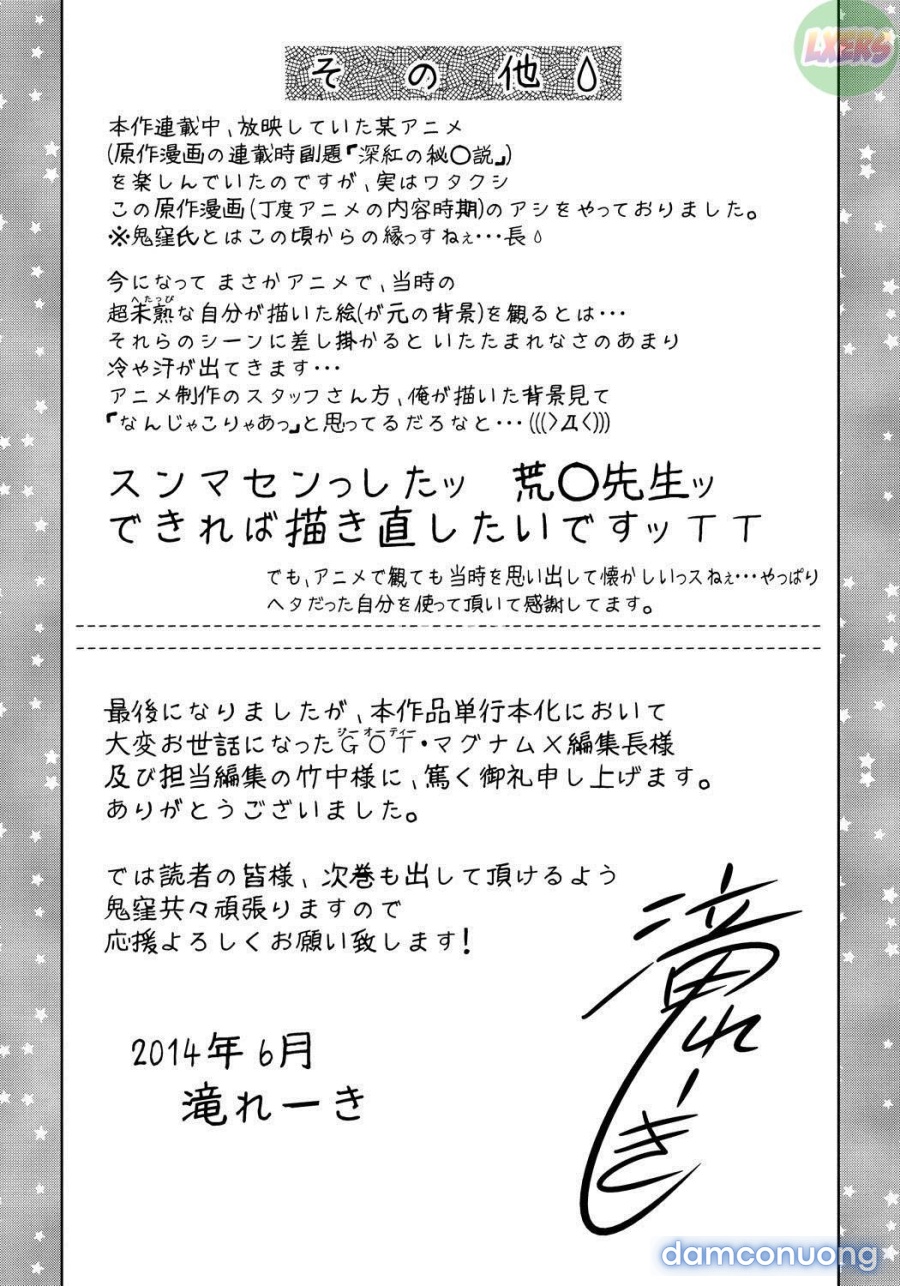 LXERS
その他
本作連載中、放映していた某アニメ
(原作漫画の連載時副題『深紅の秘〇説』)
を楽しんでいたのですが、実はワタクシ
この原作漫画(丁度アニメの内容時期)のアシをやっておりました。
※鬼窪氏とはこの頃からの縁っすねぇ・・・長
今になって まさかアニメで、当時の
へたっぴ
超未熟な自分が描いた絵(が元の背景)を観るとは・・・
それらのシーンに差し掛かると いたたまれなさのあまり
冷や汗が出てきます・・・
アニメ制作のスタッフさん方、俺が描いた背景見て
『なんじゃこりゃあっ』と思ってるだろなと・・・(((>Д<)))
スンマセンっしたッ 荒〇先生ッ
できれば描き直したいですッTT
でも、アニメで観ても当時を思い出して懐かしいっスねぇ・・・やっぱり
ヘタだった自分を使って頂いて感謝してます。
最後になりましたが、本作品単行本化において
ジーオーティー
大変お世話になったGOT・マグナムX編集長様
及び担当編集の竹中様に、篤く御礼申し上げます。
ありがとうございました。
では読者の皆様、次巻も出して頂けるよう
鬼窪共々頑張りますので
応援よろしくお願い致します!
2014年6月
滝れーき
滝れーき
damconuong